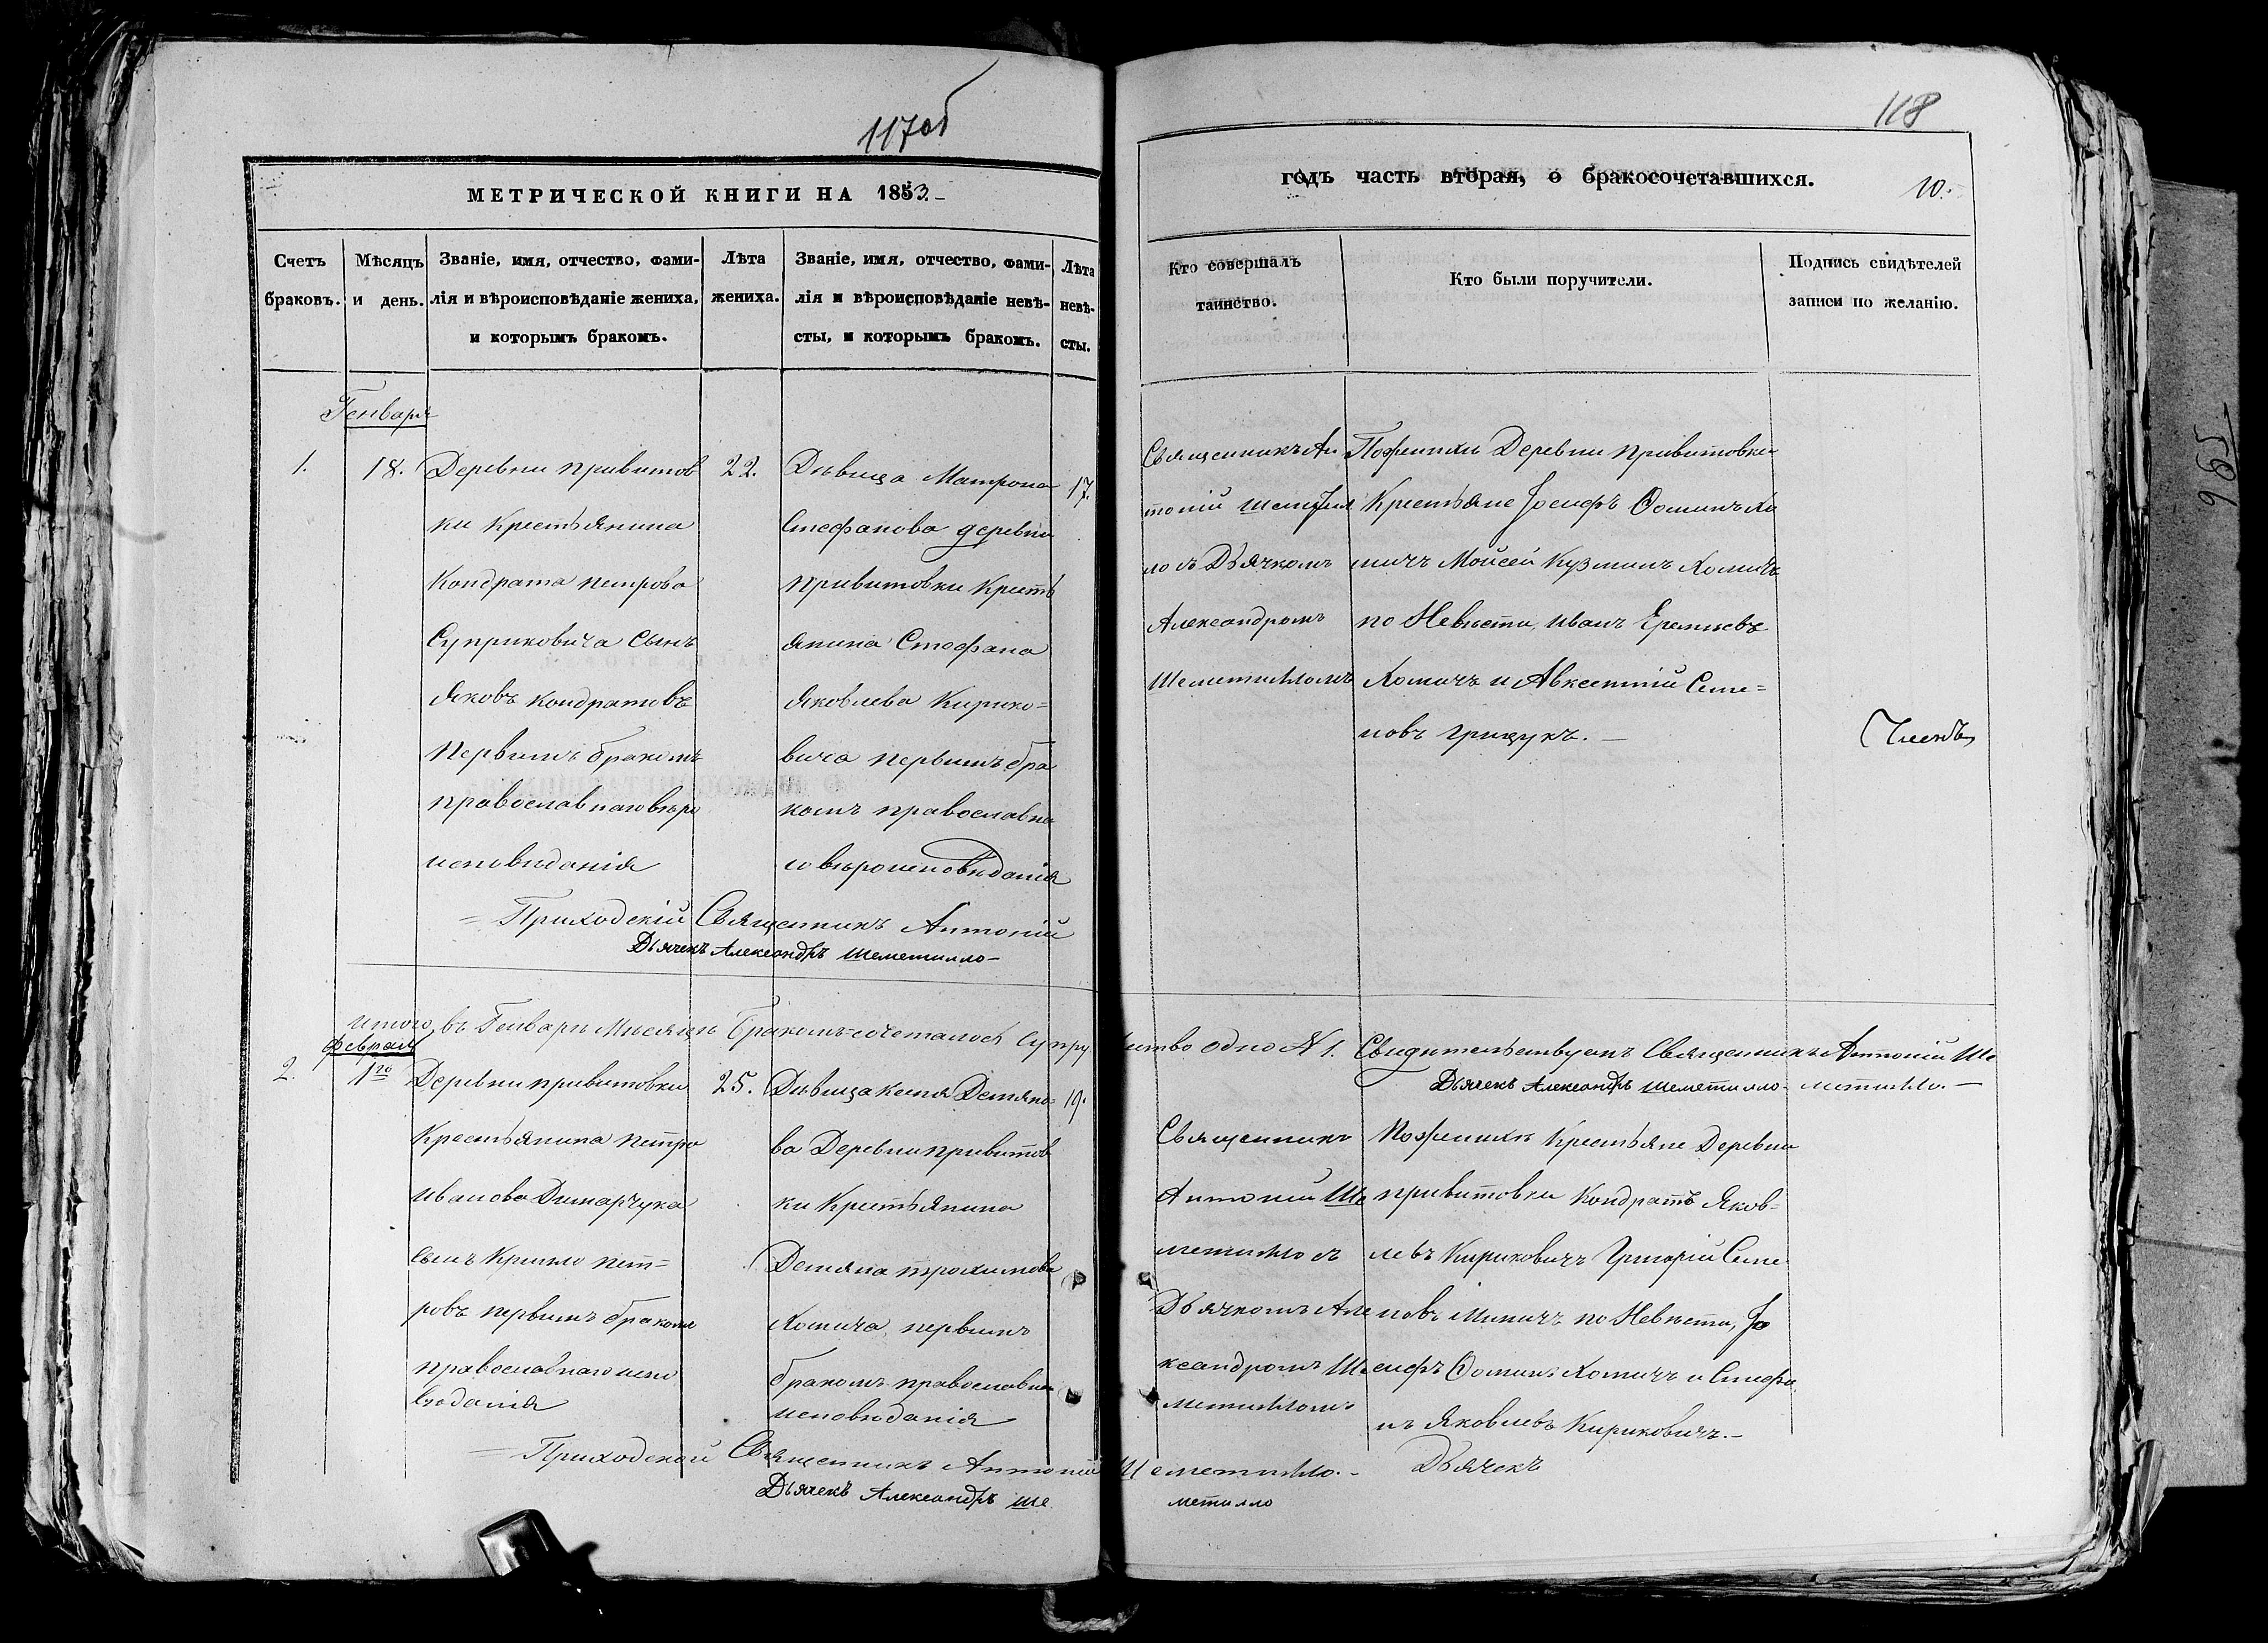 117об
МЕТРИЧЕСКОЙ КНИГИ НА 1853.
Счетъ браковъ.
Мѣсяцъ и день.
Званіе, имя, отчество, фами-
лія и вѣроисповѣданіе жениха,
и которымъ бракомъ.
Лѣта
жениха.
Званіе, имя, отчество, фами-
лія и вѣроисповѣданіе невѣ-
сты, и которымъ бракомъ.
Лѣта
невѣ-
сты.
Генваря
1.
18.
Деревни Привитов
ки Крестьянина
Кондрата Петрова
Суприковича Сынъ
Яковъ Кондратовъ
Первымъ бракомъ
православнаго вѣро
исповѣданія
22.
Дѣвица Матрона
Стефанова деревни
Привитовки Кресть
янина Стефана
Яковлева Кирико=
вича первымъ бра
комъ православна
го вѣроисповѣданія
17.
Приходскій Священникъ Антоній
Дьячекъ Александръ Шеметилло
итого въ Генварѣ Мѣсяцѣ бракомъ сочеталось супру
Февраля
2.
1го
Деревни Привитовки
Крестьянина Петра
Иванова Димарчука
сынъ Кирило Пет=
ровъ первымъ бракомъ
православнаго испо
вѣданія
25.
Дѣвица Ксенія Демяно=
ва Деревни Привитов
ки Крестьянина
Демяна Трохимова
Хомича первымъ
бракомъ православна
исповѣданія
19.
Приходской Священникъ Антоній
Дьячекъ Александръ Ше
118
годъ часть вторая, о бракосочетавшихся.
10.
Кто совершалъ
таинство.
Кто были поручители.
Подпись свидѣтелей
записи по желанію.
Священникъ Ан
тоній Шемети
ло съ Дьячкомъ
Александромъ
Шеметилломъ
По женихѣ Деревни Привитовки
Крестьяне Іосифъ Ѳоминъ Хо
мичъ Моисей Кузминъ Хомичъ
по Невѣсти, Иванъ Еремѣевъ
Хомичъ и Авксентій Семе=
новъ Грицукъ.
жество одно № 1. Свидѣтельствуемъ Священникъ Антоній Ше
метилло.
Дьячекъ Александръ Шеметилло
Священникъ
Антоній Ше
метилло съ
Дьячкомъ Але
ксандромъ Ше
метилломъ
По женихѣ Крестьяне Деревни
Привитовки Кондратъ Яков=
левъ Кириковичъ Григорій Семе
новъ Миничъ по Невѣсти, Іо
сифъ Ѳоминъ Хомичъ и Стефа
нъ Яковлевъ Кириковичъ.
Шеметилло. Дьячекъ
метилло
965